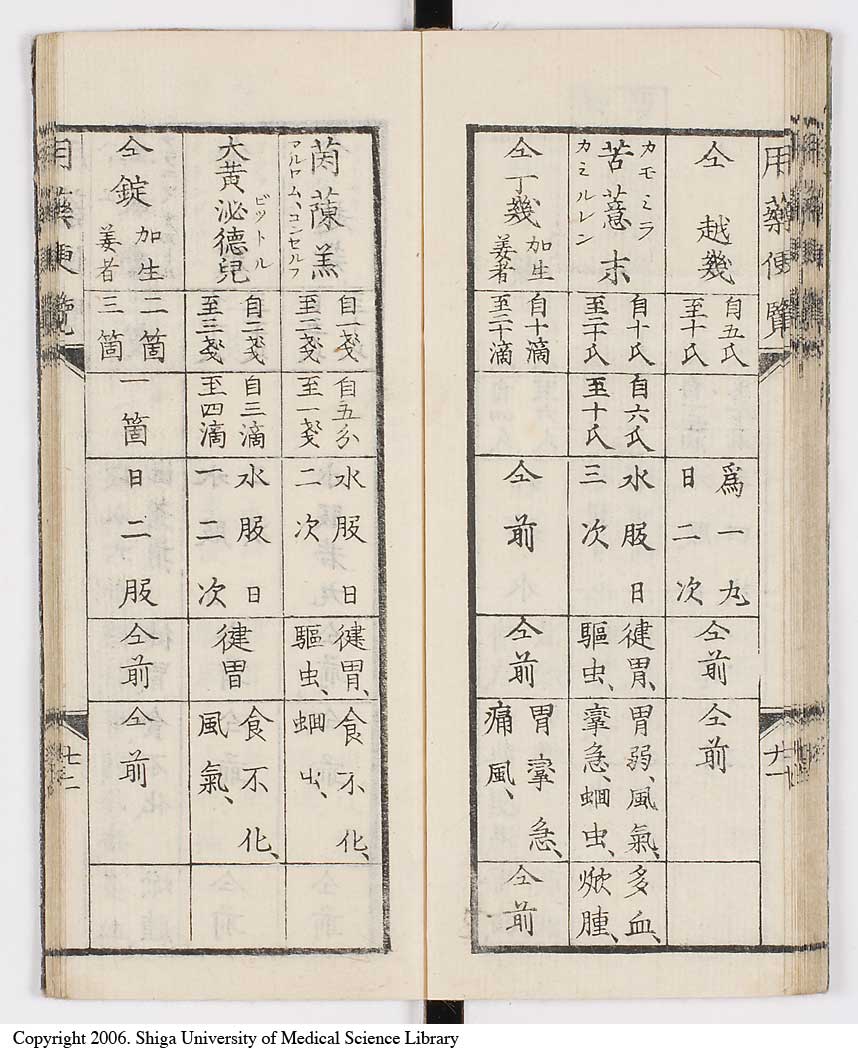 用藥便覽
仝越幾
自五氏
至十氏
爲一丸
日二次
仝前
仝前
カモミラ
苦薏末
カミルレン
自十氏
至二十氏
自六氏
至十氏
水服日
三次
健胃、
驅虫、
胃弱、風氣、
攣急、蛔虫、
多血、
焮腫、
仝丁幾
加生
姜者
自十滴
至三十滴
仝前
仝前
胃攣急、
痛風、
仝前
茵蔯羔
マルロム、コンセルフ
自一戔
至二戔
自五分
至一戔
水服日
二次
健胃、
驅虫、
食不化、
蛔虫、
ビットル
大黃泌德兒
自二戔
至三戔
自三滴
至四滴
水服日
一二次
健胃
食不化、
風氣、
仝錠
加生
姜者
二箇
三箇
一箇
日二服
仝前
仝前
用藥便覽